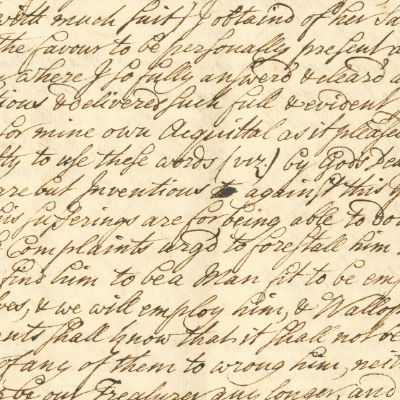 with much suit) I obtaind of her
the favour to be personally present
where I so fully answerd & cleard
& delivered such full & evident
for mine own Acquittal as it pleased
to use these words (viz.) by Gods
are but Inventions against this
his sufferings are for being able to do
Complaints urgd to forestall him
find him to be a Man fit to be
& we will employ him, & Wallop
shall know that it shall not be
of any of them to wrong him,
be our Treasurer any longer, and